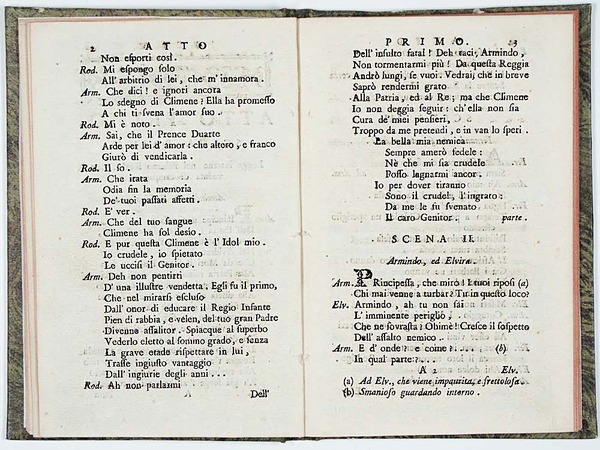 2 ATTO
Non esporti così.
Rod. Mi espongo solo
All' arbitrio di lei, che m' innamora.
Arm. Che dici! e ignori ancora
Lo sdegno di Climene: Ella ha promesso
A chi ti svena l' amor suo.
Rod. Mi è noto.
Arm. Sai, che il Prence Duarte
Arde per lei d' amor: che altero, e franco
Giurò di vendicarla.
Rod. Il so.
Arm. Che irata
Odia fin la memoria
De' tuoi passati affetti.
Rod. E' ver.
Arm. Che del tuo sangue
Climene ha sol desio.
Rod. E pur questa Climene è l' Idol mio.
Io crudele, io spietato
Le uccisi il Genitor.
Arm. Deh non pentirti
D' una illustre vendetta. Egli fu il primo,
Che nel mirarsi escluso
Dall' onor di educare il Regio Infante
Pien di rabbia, e velen, del tuo gran Padre
Divenne assalitor. Spiacque al superbo
Vederlo eletto al sommo grado, e senza
La grave etade rispettare in lui,
Trasse ingiusto vantaggio
Dall' ingiurie degli anni...
Rod. Ah non parlarmi
A Dell'
PRIMO. 3
Dell' insulto fatal! Deh taci, Armindo,
Non tormentarmi più! Da questa Reggia
Andrò lungi, se vuoi. Vedrai, che in breve
Saprò rendermi grato
Alla Patria, ed al Re; ma che Climene
Io non deggia seguir: ch' ella non sia
Cura de' miei pensieri,
Troppo da me pretendi, e in van lo speri.
La bella mia nemica
Sempre amerò fedele:
Nè che mi sia crudele
Posso lagnarmi ancor.
Io per dover tiranno
Sono il crudel, l' ingrato:
Da me fu svenato
Il caro Genitor. parte.
SCENA II.
Armindo, ed Elvira.
Arm. PRincipessa, che mirò! I tuoi riposi (a)
Chi mai venne a turbar? Tu in questo loco?
Elv. Armindo, ah tu non sai
L' imminente periglio,
Che ne sovrasta! Ohimè! Cresce il sospetto
Dell' assalto nemico..
Arm. E d' onde? e come?.... (b)
In qual parte?....
A 2 Elv.
(a) Ad Elv., che viene impaurita, e frettolosa.
(b) Smanioso guardando interno.